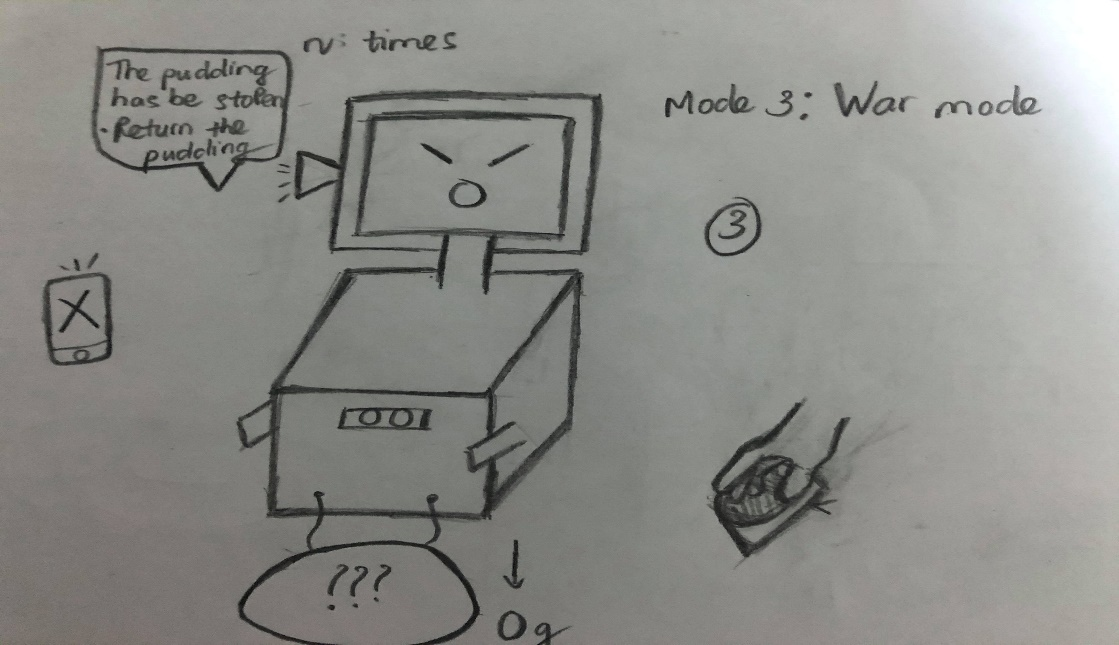 n: times
The pudding
has be stolen
. Return the
pudding
Mode 3: War mode
3
X
???
0g